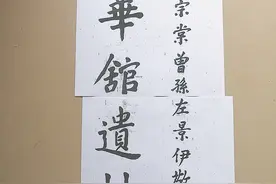 華舘遺
宗棠曾孫左景伊